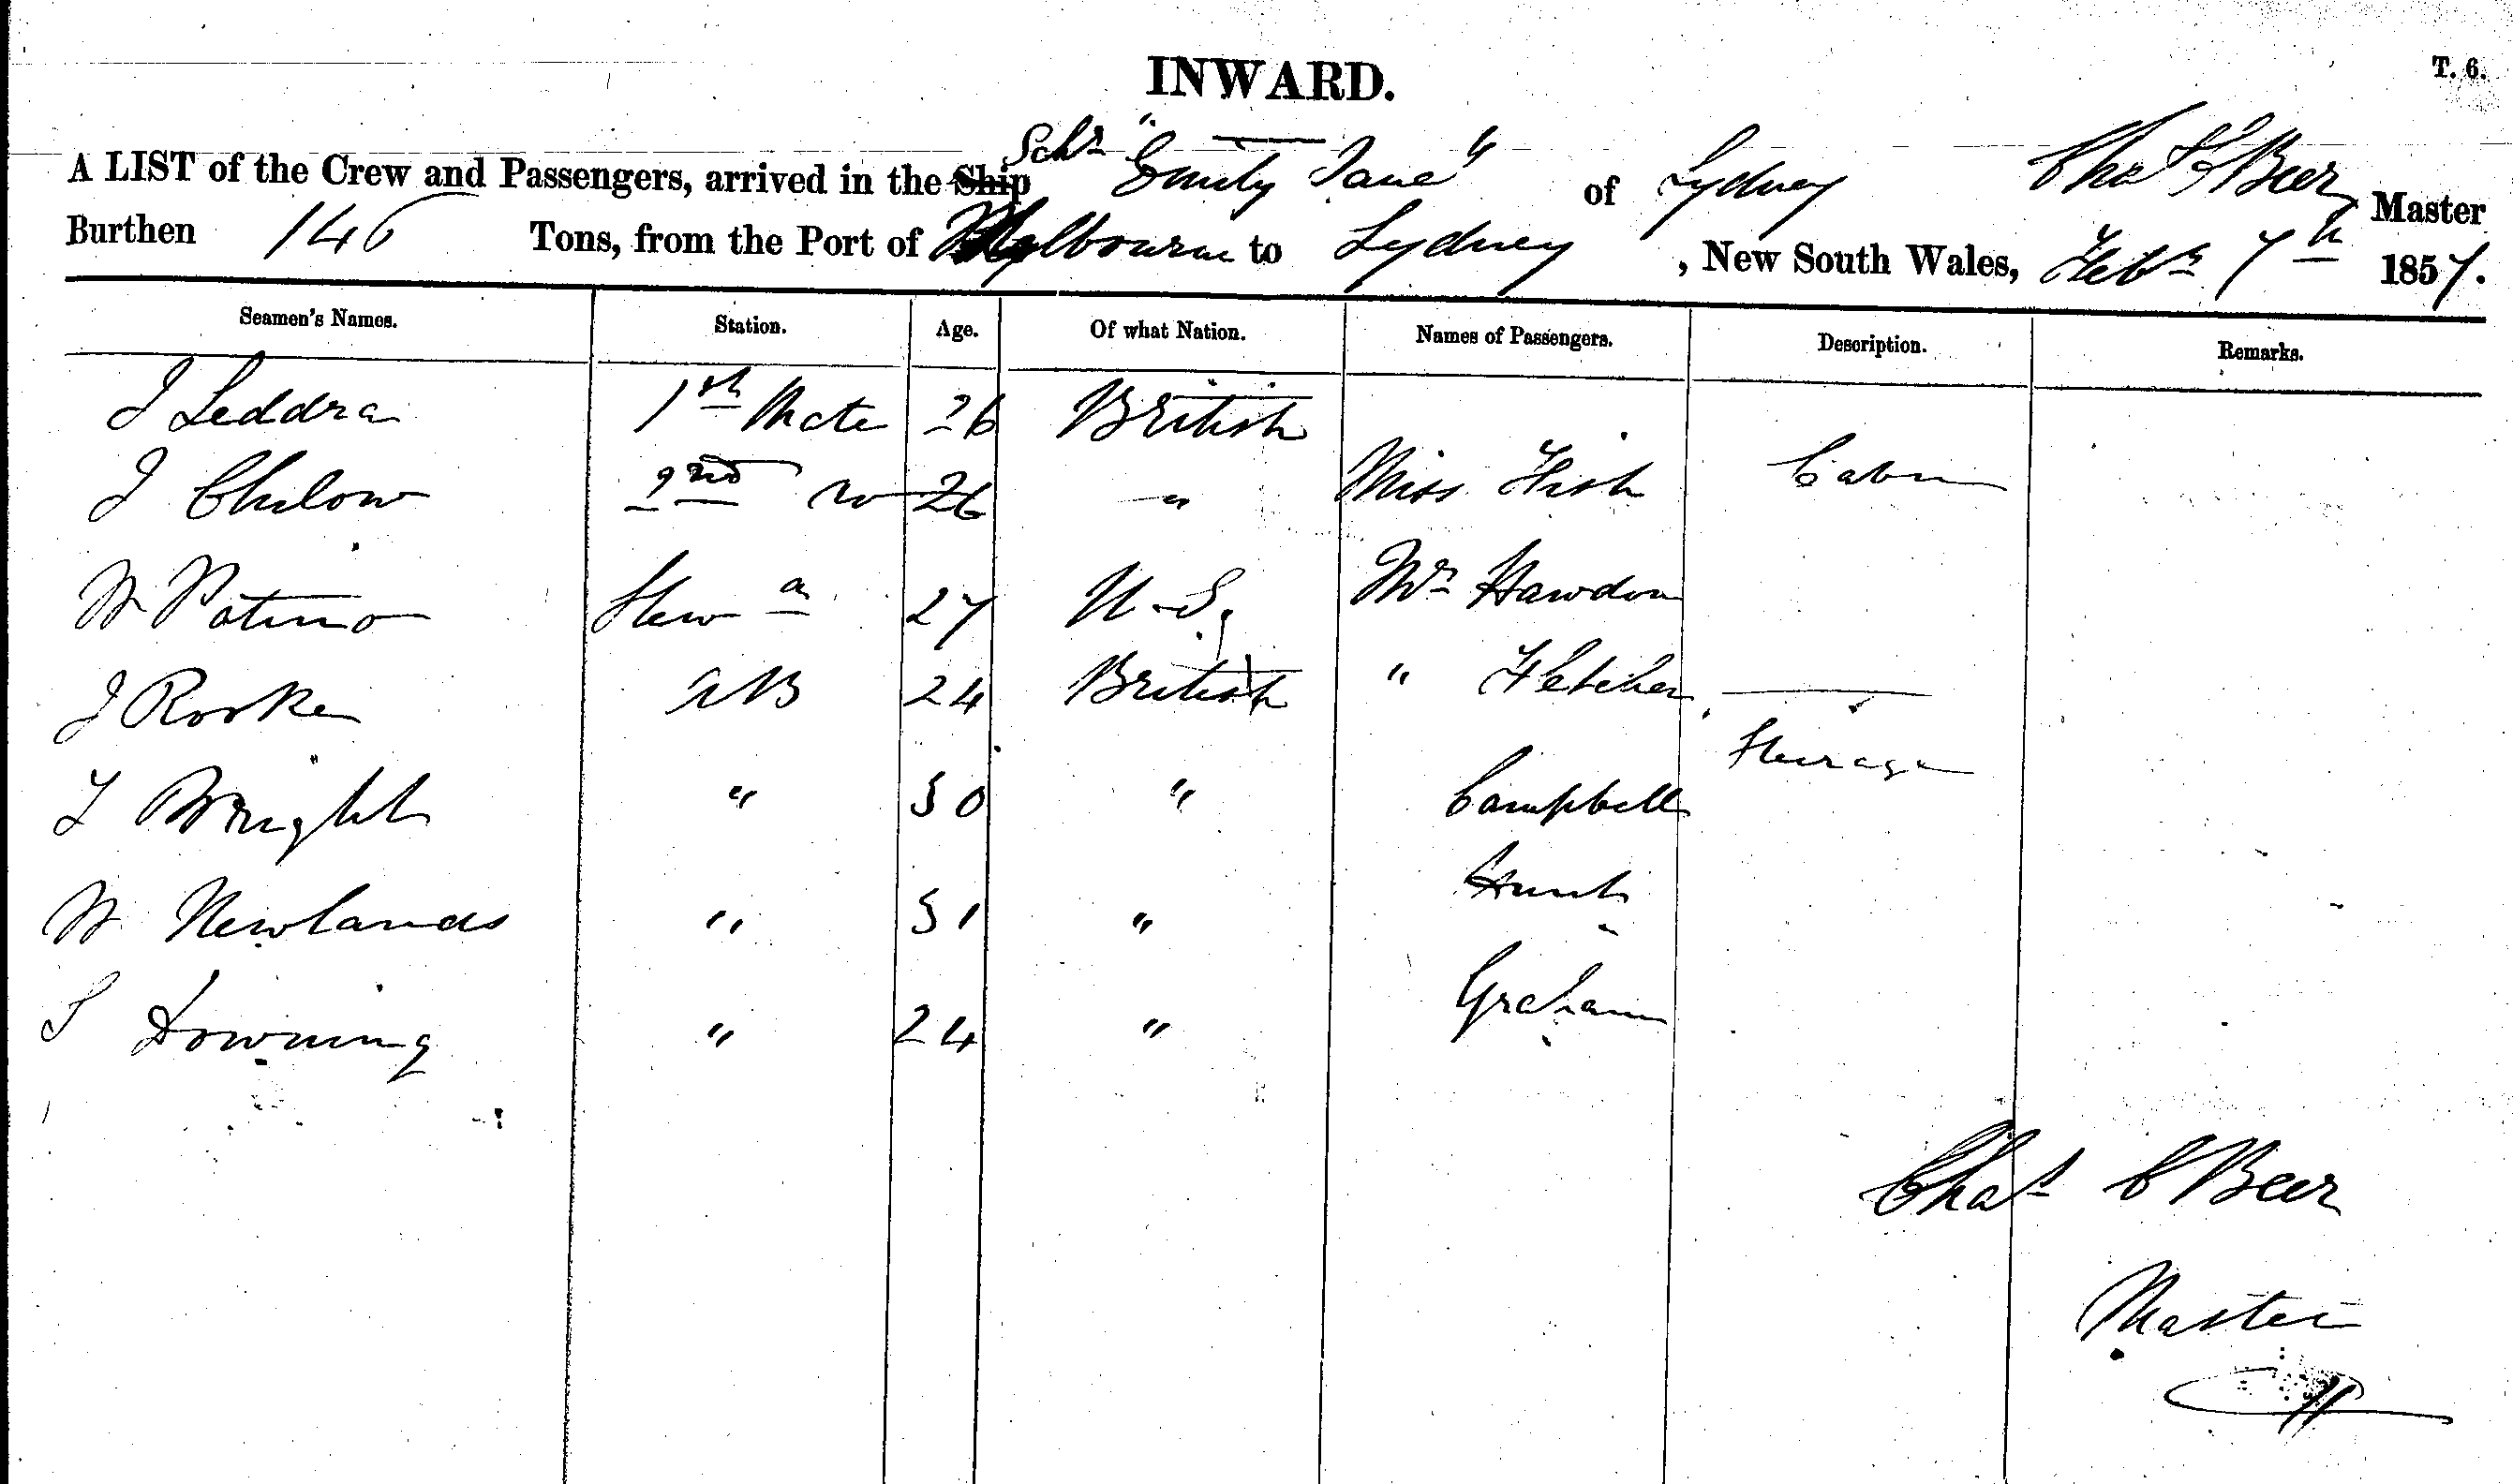 INWARD.
T. 6.
A LIST of the Crew and Passengers, arrived in the Ship Schr "Emily Jane" of Sydney Chas Beer Master
Burthen 146 Tons, from the Port of Melbourne to Sydney, New South Wales, Feby 7th 1857.
Seamen's Names. Station. Age. Of what Nation. Names of Passengers. Description. Remarks.
J Leddra 1st Mate 26 British
J Chilow 2nd 26 " Miss Fish Cabin
W Patino Stewd 27 U.S. Mr Hawdon
J Rooke AB 24 British " Fletcher
Steerage
T Wright " 30 " Campbell
W Newlands " 31 " Hunt
S Downing " 24 " Graham
Chas C Beer
Master